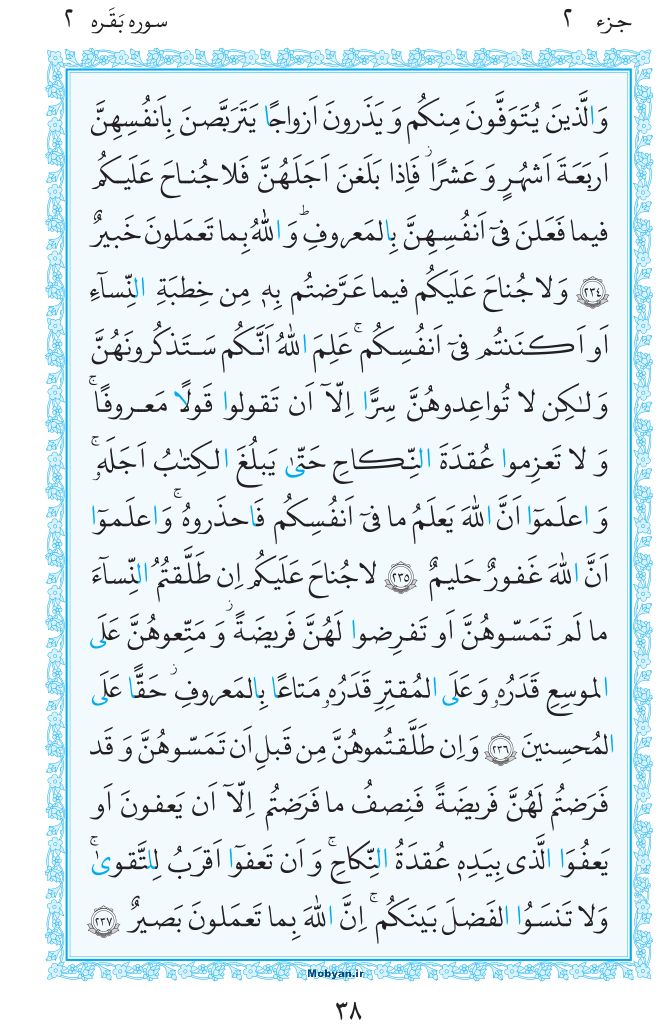 جزء ٢ سوره بَقَره ٢
وَالَّذينَ يُتَوَفَّونَ مِنكُم وَ يَذَرونَ اَزواجًا يَتَرَبَّصنَ بِاَنفُسِهِنَّ
اَربَعَةَ اَشهُرٍ وَ عَشرًاۖ فَاِذا بَلَغنَ اَجَلَهُنَّ فَلا جُناحَ عَلَيكُم
فيما فَعَلنَ فىٓ اَنفُسِهِنَّ بِالمَعروفِؕ وَ اللهُ بِما تَعمَلونَ خَبيرٌ
﴿٢٣٤﴾ وَلا جُناحَ عَلَيكُم فيما عَرَّضتُم بِهٖ مِن خِطبَةِ النِّسآءِ
اَو اَكنَنتُم فىٓ اَنفُسِكُمۚ عَلِمَ اللهُ اَنَّكُم سَتَذكُرونَهُنَّ
وَ لٰكِن لا تُواعِدوهُنَّ سِرًّا اِلّآ اَن تَقولوا قَولًا مَعروفًاۚ
وَ لا تَعزِموا عُقدَةَ النِّكاحِ حَتّىٰ يَبلُغَ الكِتٰبُ اَجَلَهٗۚ
وَ اعلَموٓا اَنَّ اللهَ يَعلَمُ ما فىٓ اَنفُسِكُم فَاحذَروهُۚ وَ اعلَموٓا
اَنَّ اللهَ غَفورٌ حَليمٌ ﴿٢٣٥﴾ لا جُناحَ عَلَيكُم اِن طَلَّقتُمُ النِّسآءَ
ما لَم تَمَسّوهُنَّ اَو تَفرِضوا لَهُنَّ فَريضَةًۚ وَ مَتِّعوهُنَّ عَلَى
الموسِعِ قَدَرُهٗ وَ عَلَى المُقتِرِ قَدَرُهٗ مَتاعًا بِالمَعروفِۖ حَقًّا عَلَى
المُحسِنينَ ﴿٢٣٦﴾ وَ اِن طَلَّقتُموهُنَّ مِن قَبلِ اَن تَمَسّوهُنَّ وَ قَد
فَرَضتُم لَهُنَّ فَريضَةً فَنِصفُ ما فَرَضتُم اِلّآ اَن يَعفونَ اَو
يَعفُوَا الَّذى بِيَدِهٖ عُقدَةُ النِّكاحِۚ وَ اَن تَعفوٓا اَقرَبُ لِلتَّقوىٰۚ
وَلا تَنسَوُا الفَضلَ بَينَكُمۚ اِنَّ اللهَ بِما تَعمَلونَ بَصيرٌ ﴿٢٣٧﴾
Mobyan.ir
٣٨